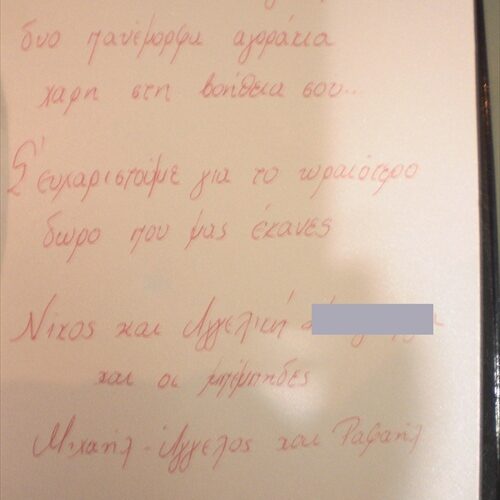 δυο πανέμορφα αγοράκια
χαρη στη βοήθεια σου..
Σ' ευχαριστούμε για το ωραιότερο
δωρο που μας έκανες
Νίκος και Αγγελική
και οι μπέμπηδες
Μιχαήλ-Άγγελος και Ραφαήλ